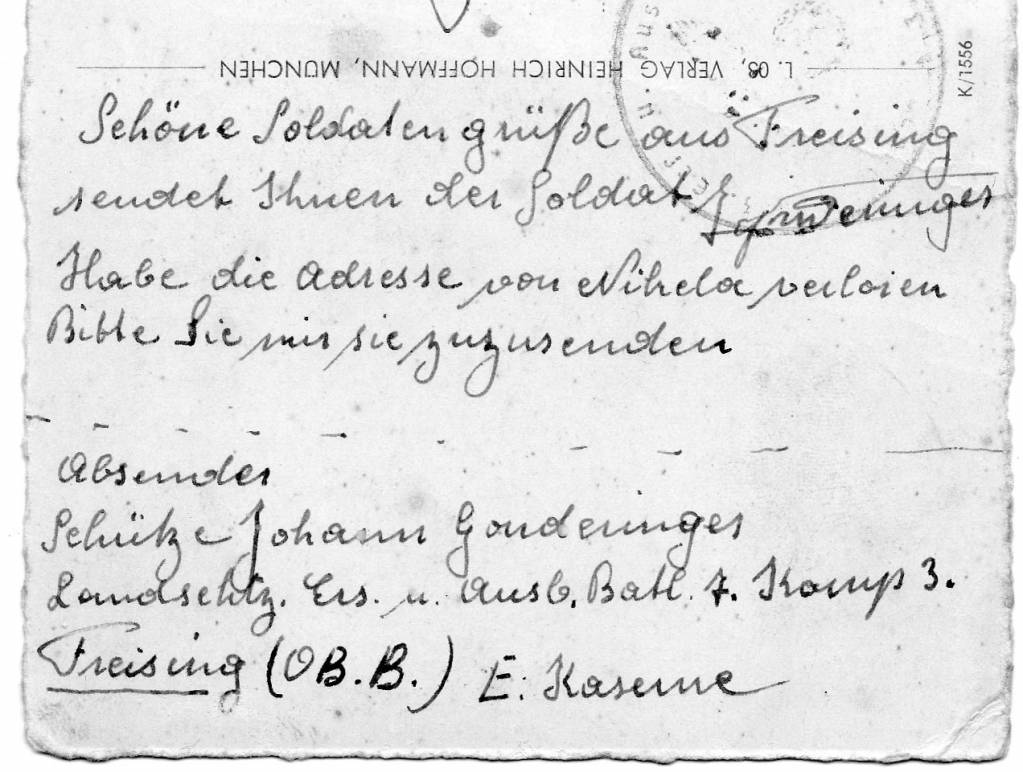 L. 08, VERLAG HEINRICH HOFFMANN, MÜNCHEN
K/1556
Schöne Soldatengrüße aus Freising
sendet Ihnen der Soldat J. Gonderinger
Habe die Adresse von Nikela verloren
Bitte Sie mir sie zuzusenden
Absender
Schütze Johann Gonderinger
Landschtz. Ers. u. Ausb. Batl. 7. Komp 3.
Freising (OB.B.) E. Kaserne